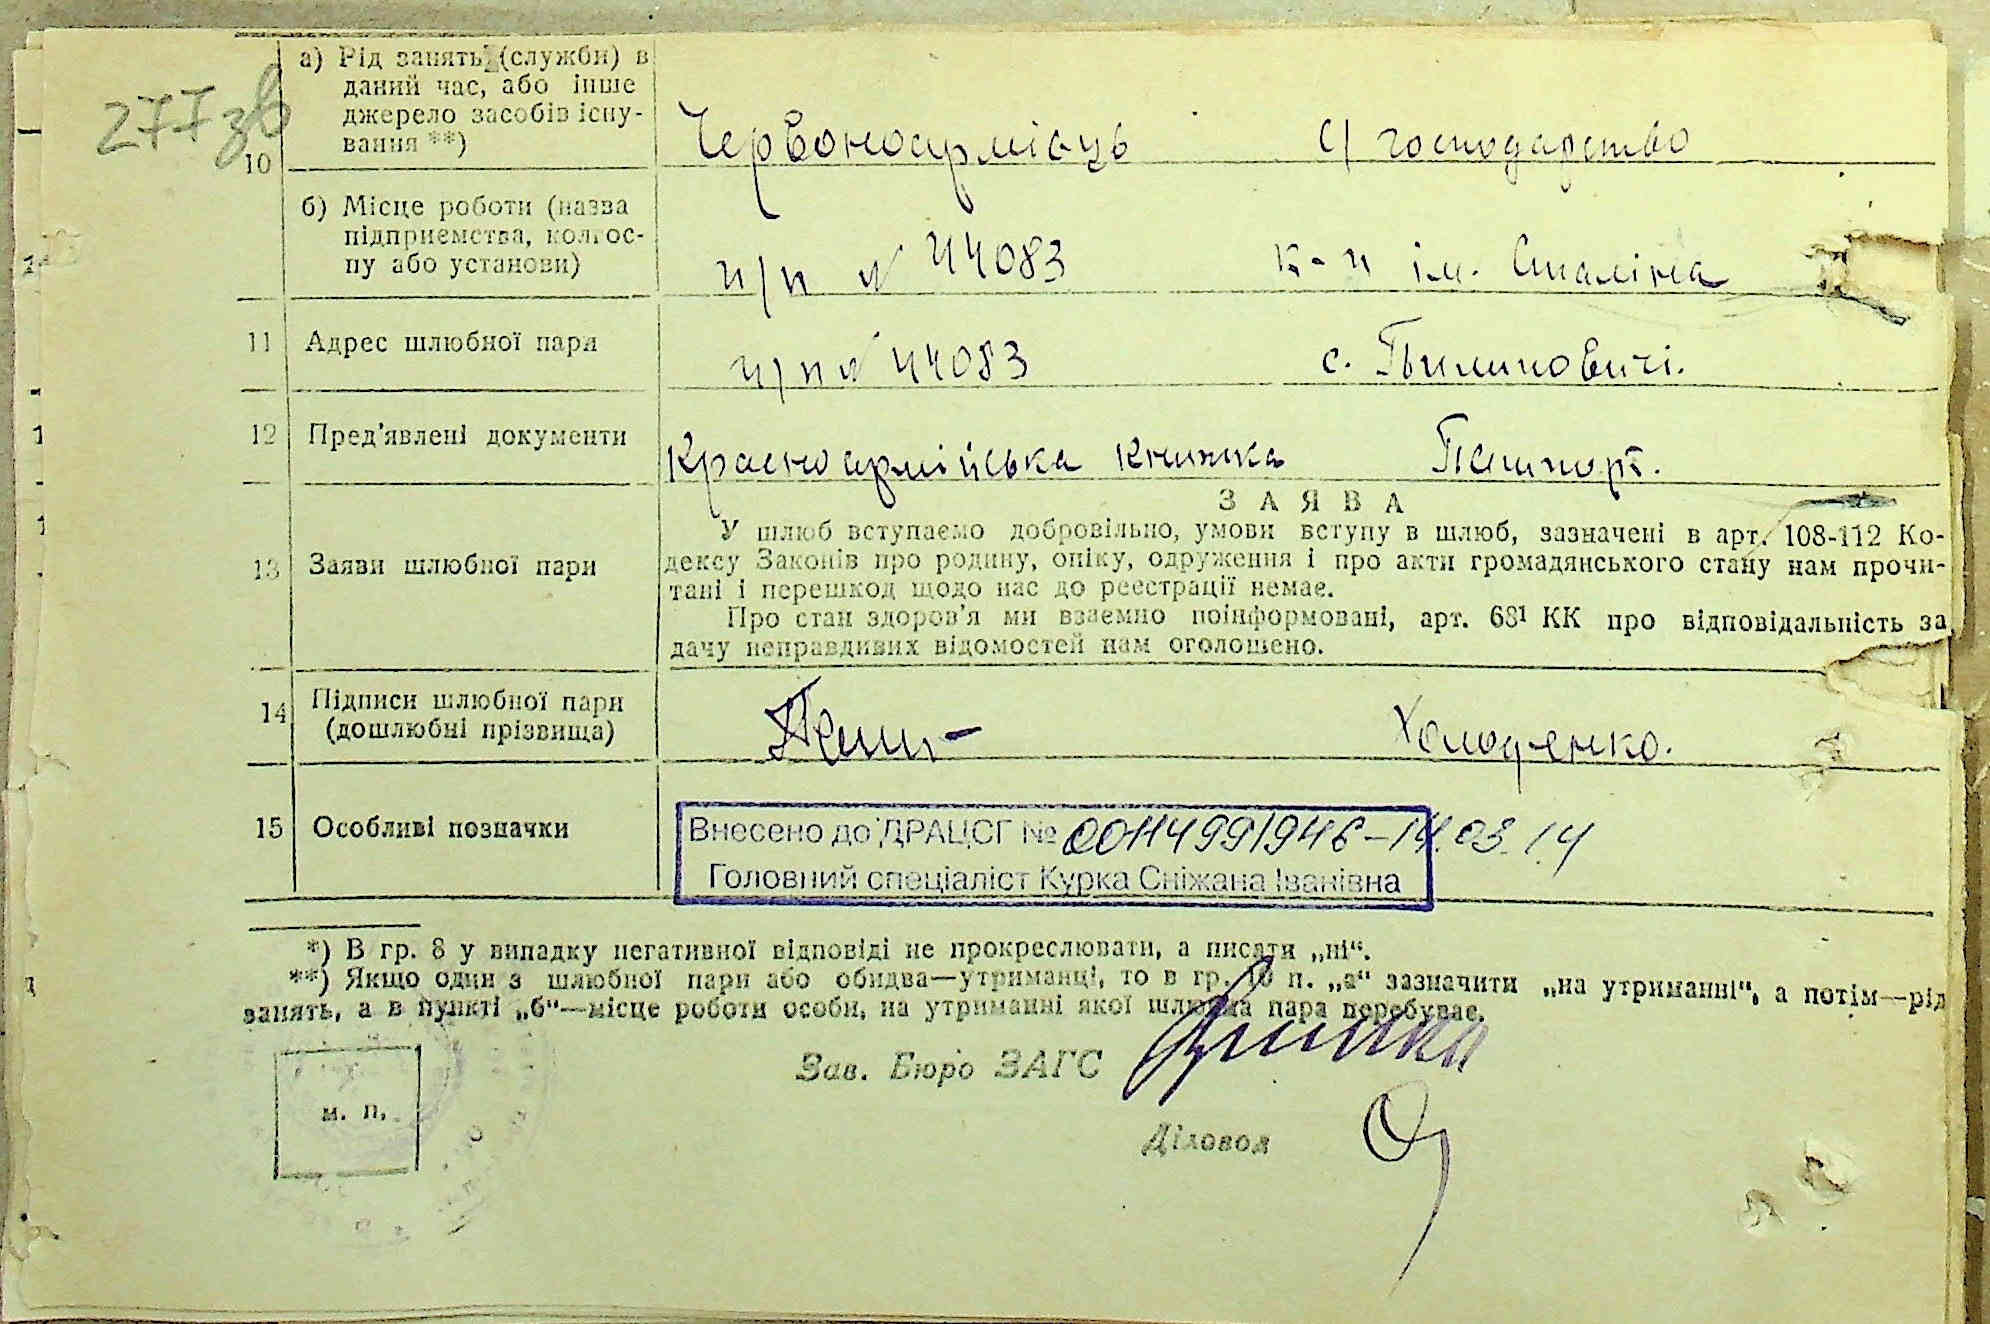 277зв
а) Рід занять (служби) в
даний час, або інше
джерело засобів існу-
вання **)
10
Червоноармієць С/ господарство
б) Місце роботи (назва
підприємства, колгос-
пу або установи)
п/п № 44083 к-п ім. Сталіна
11 Адрес шлюбної пари
п/п № 44083 с. Пилиповичі.
12 Пред'явлені документи
Красноармійська книжка Пашпорт.
ЗАЯВА
13 Заяви шлюбної пари
У шлюб вступаємо добровільно, умови вступу в шлюб, зазначені в арт. 108-112 Ко-
дексу Законів про родину, опіку, одруження і про акти громадянського стану нам прочи-
тані і перешкод щодо нас до реєстрації немає.
Про стан здоров'я ми взаємно поінформовані, арт. 68¹ КК про відповідальність за
дачу неправдивих відомостей нам оголошено.
14 Підписи шлюбної пари
(дошлюбні прізвища)
Холоденко.
15 Особливі позначки
Внесено до ДРАЦСГ № 00114991946-14.03.14
Головний спеціаліст Курка Сніжана Іванівна
*) В гр. 8 у випадку негативної відповіді не прокреслювати, а писати „ні“.
**) Якщо один з шлюбної пари або обидва—утриманці, то в гр. 10 п. „а“ зазначити „на утриманні“, а потім—рід
занять, а в пункті „б“—місце роботи особи, на утриманні якої шлюбна пара перебуває.
Зав. Бюро ЗАГС
м. п.
Діловод